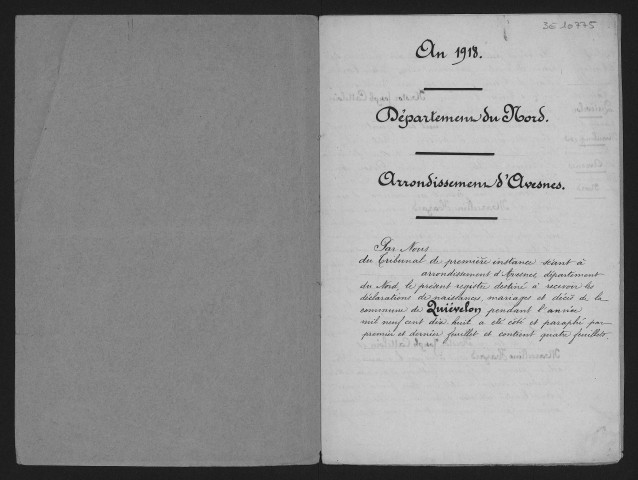 3E 10775
An 1918.
Département du Nord.
Arrondissement d'Avesnes.
Par Nous
du Tribunal de première instance séant à
arrondissement d'Avesnes département
du Nord, le présent registre destiné à recevoir les
déclarations de naissances, mariages et décès de la
commune de Quiévelon pendant l'année
mil neuf cent dix huit a été côté et paraphé par
premier et dernier feuillet et contient quatre feuillets.